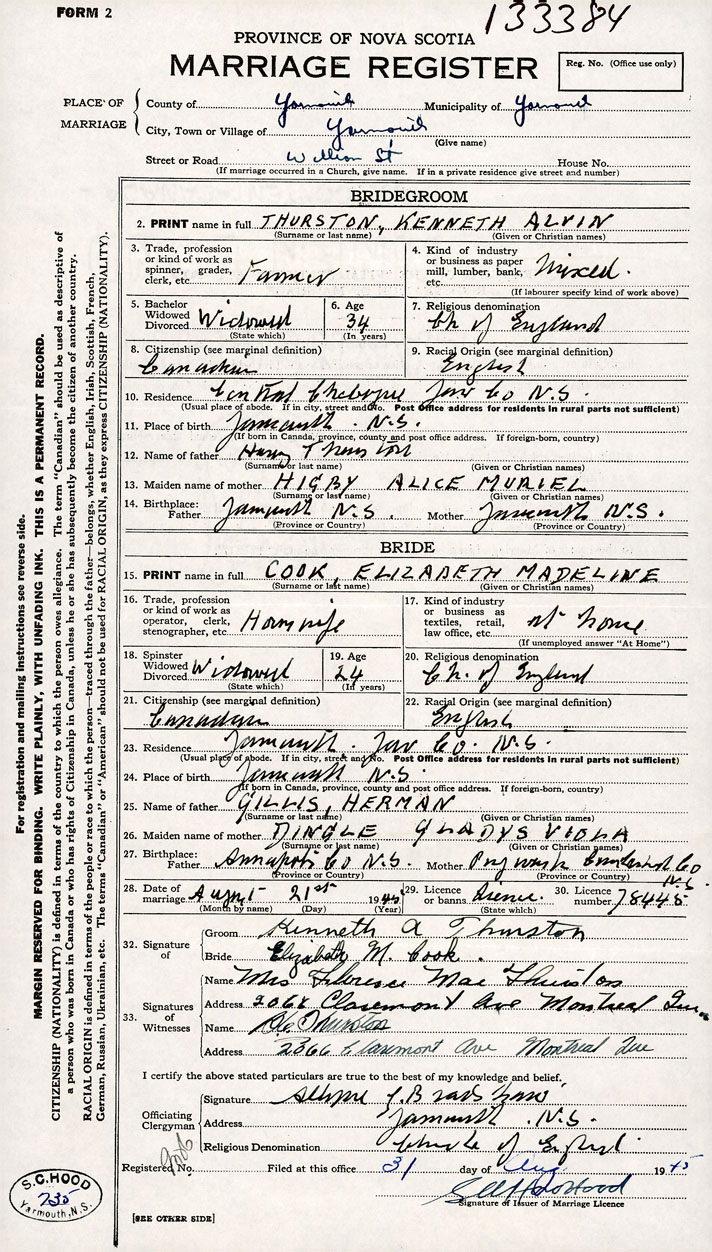 FORM 2
133384
PROVINCE OF NOVA SCOTIA
MARRIAGE REGISTER
Reg. No. (Office use only)
PLACE OF MARRIAGE
County of Yarmouth Municipality of Yarmouth
City, Town or Village of Yarmouth
(Give name)
Street or Road William St House No.
(If marriage occurred in a Church, give name. If in a private residence give street and number)
BRIDEGROOM
2. PRINT name in full THURSTON, KENNETH ALVIN
(Surname or last name) (Given or Christian names)
3. Trade, profession or kind of work as spinner, grader, clerk, etc. Farmer
4. Kind of industry or business as paper mill, lumber, bank, etc. Mixed.
(If labourer specify kind of work above)
5. Bachelor Widowed Divorced Widowed
(State which)
6. Age 34
(In years)
7. Religious denomination Ch of England
8. Citizenship (see marginal definition) Canadian
9. Racial Origin (see marginal definition) English
10. Residence Central Chebogue Yar Co N.S.
(Usual place of abode. If in city, street and No. Post Office address for residents in rural parts not sufficient)
11. Place of birth Yarmouth. N.S.
(If born in Canada, province, county and post office address. If foreign-born, country)
12. Name of father Harry Thurston
(Surname or last name) (Given or Christian names)
13. Maiden name of mother HIGBY ALICE MURIEL
(Surname or last name) (Given or Christian names)
14. Birthplace: Father Yarmouth N.S. Mother Yarmouth N.S.
(Province or Country) (Province or Country)
BRIDE
15. PRINT name in full COOK, ELIZABETH MADELINE
(Surname or last name) (Given or Christian names)
16. Trade, profession or kind of work as operator, clerk, stenographer, etc. Housewife
17. Kind of industry or business as textiles, retail, law office, etc. at home
(If unemployed answer "At Home")
18. Spinster Widowed Divorced Widowed
(State which)
19. Age 24
(In years)
20. Religious denomination Ch. of England
21. Citizenship (see marginal definition) Canadian
22. Racial Origin (see marginal definition) English
23. Residence Yarmouth. Yar Co. N.S.
(Usual place of abode. If in city, street and No. Post Office address for residents in rural parts not sufficient)
24. Place of birth Yarmouth N.S.
(If born in Canada, province, county and post office address. If foreign-born, country)
25. Name of father GILLIS, HERMAN
(Surname or last name) (Given or Christian names)
26. Maiden name of mother DINGLE GLADYS VIOLA
(Surname or last name) (Given or Christian names)
27. Birthplace: Father Annapolis Co N.S. Mother Pugwash Cumberland Co N.S.
(Province or Country) (Province or Country)
28. Date of marriage August 21st 1945
(Month by name) (Day) (Year)
29. Licence or banns Licence.
(State which)
30. Licence number 78445
32. Signature of
Groom Kenneth A Thurston
Bride Elizabeth M. Cook.
33. Signatures of Witnesses
Name Mrs Florence Mae Thurston
Address 2066 Claremont Ave Montreal Que
Name Thurston
Address 2366 Claremont Ave Montreal Que
I certify the above stated particulars are true to the best of my knowledge and belief,
Officiating Clergyman
Signature
Address Yarmouth. N.S.
Religious Denomination Church of England.
Registered No. Filed at this office 31 day of Aug 1945
Signature of Issuer of Marriage Licence
[SEE OTHER SIDE]
S.C. HOOD
735
Yarmouth, N.S.
For registration and mailing instructions see reverse side.
MARGIN RESERVED FOR BINDING. WRITE PLAINLY, WITH UNFADING INK. THIS IS A PERMANENT RECORD.
CITIZENSHIP (NATIONALITY) is defined in terms of the country to which the person owes allegiance. The term "Canadian" should be used as descriptive of
a person who was born in Canada or who has rights of Citizenship in Canada, unless he or she has subsequently become the citizen of another country.
RACIAL ORIGIN is defined in terms of the people or race to which the person—traced through the father—belongs, whether English, Irish, Scottish, French,
German, Russian, Ukrainian, etc. The terms "Canadian" or "American" should not be used for RACIAL ORIGIN, as they express CITIZENSHIP (NATIONALITY).